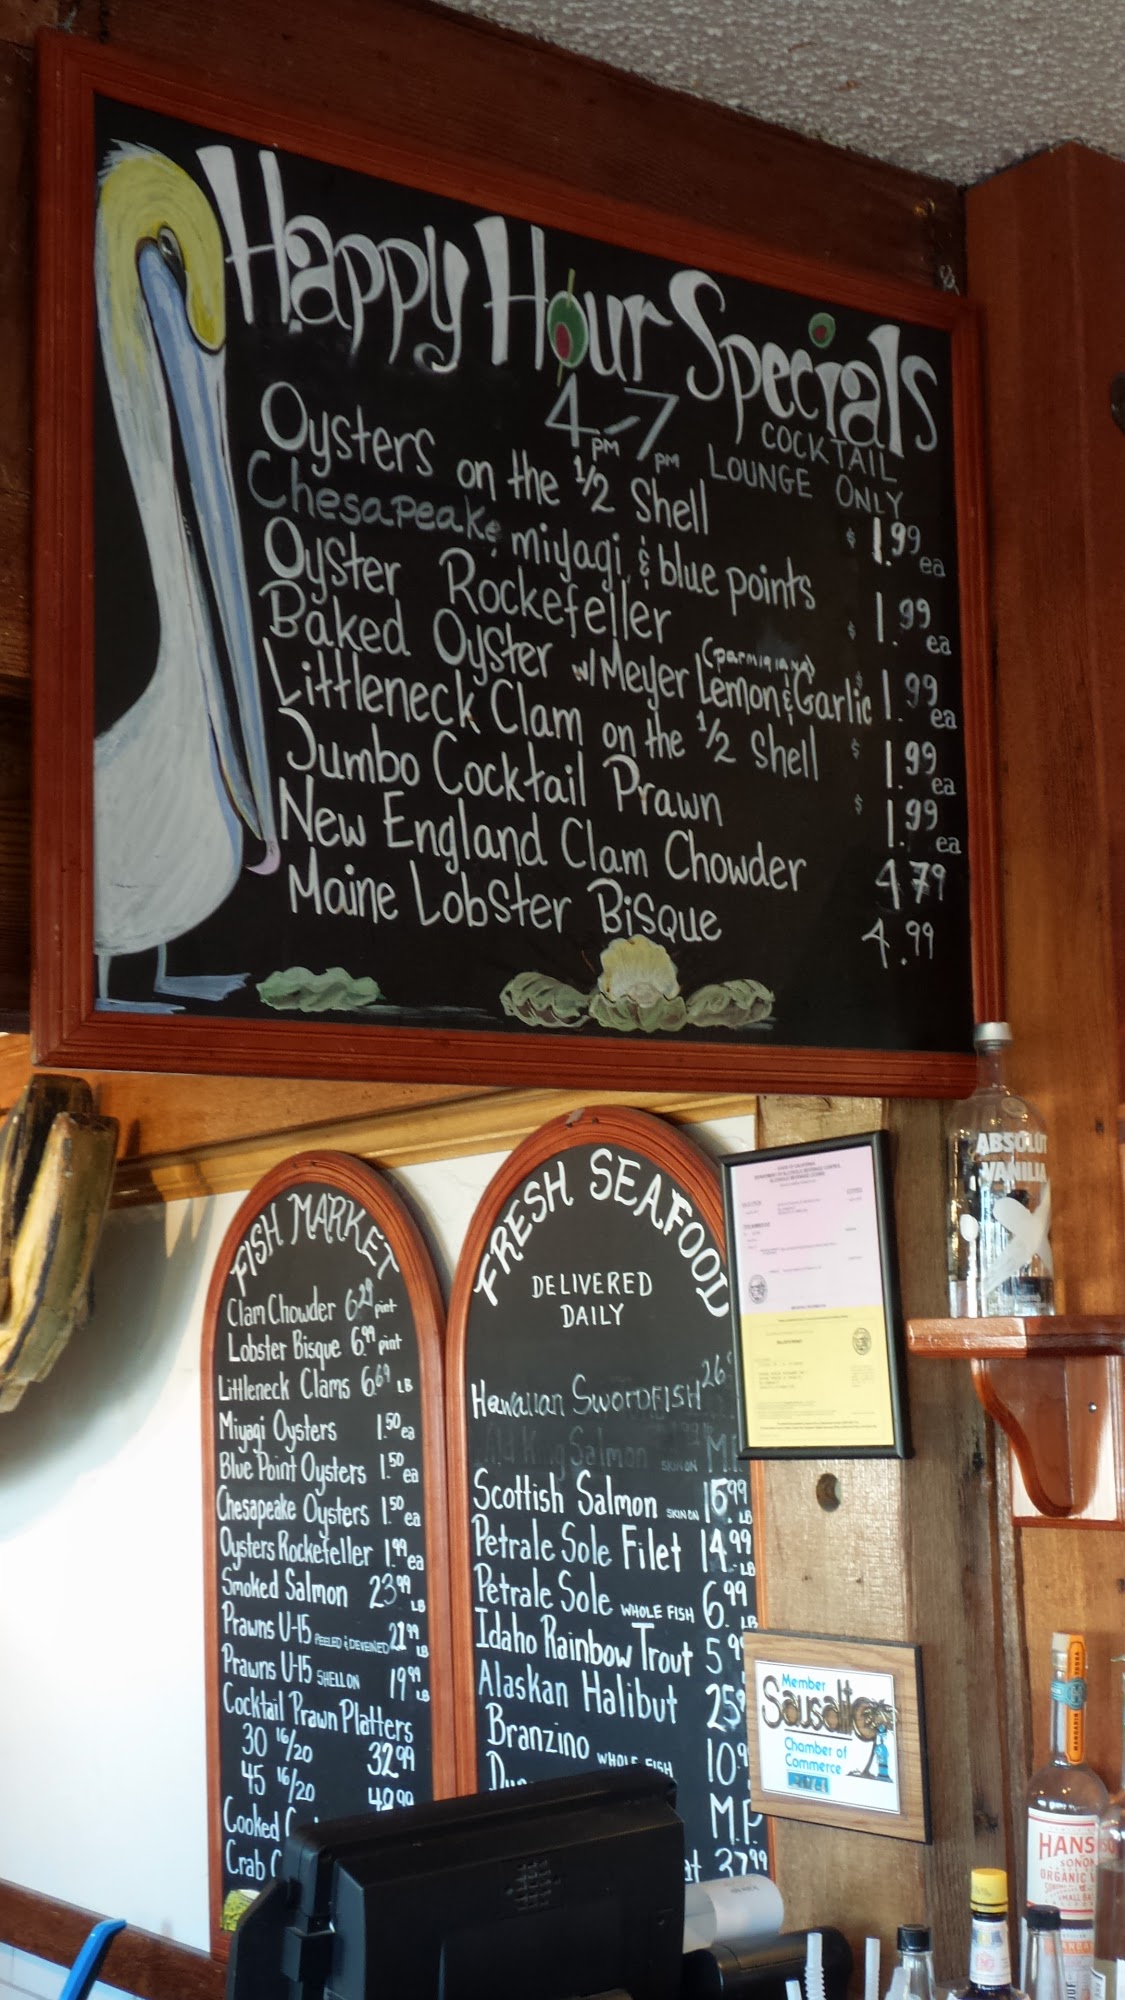 Happy Hour Specials
4pm-7pm
COCKTAIL
LOUNGE ONLY
Oysters on the 1/2 Shell $1.99 ea
Chesapeake, miyagi, & blue points
Oyster Rockefeller $1.99 ea
(parmigiana)
Baked Oyster w/ Meyer Lemon & Garlic $1.99 ea
Littleneck Clam on the 1/2 Shell $1.99 ea
Jumbo Cocktail Prawn $1.99 ea
New England Clam Chowder 4.79
Maine Lobster Bisque 4.99
FISH MARKET
Clam Chowder 6.29 pint
Lobster Bisque 6.99 pint
Littleneck Clams 6.69 LB
Miyagi Oysters 1.50 ea
Blue Point Oysters 1.50 ea
Chesapeake Oysters 1.50 ea
Oysters Rockefeller 1.99 ea
Smoked Salmon 23.99 LB
Prawns U-15 PEELED & DEVEINED 21.99 LB
Prawns U-15 SHELL ON 19.99 LB
Cocktail Prawn Platters
30 16/20 32.99
45 16/20 48.99
Cooked
Crab
FRESH SEAFOOD
DELIVERED
DAILY
Hawaiian SWORDFISH 26
King Salmon SKIN ON M.P.
Scottish Salmon SKIN ON 15.99 LB
Petrale Sole Filet 14.99 LB
Petrale Sole WHOLE FISH 6.99 LB
Idaho Rainbow Trout 5.99
Alaskan Halibut 25
Branzino WHOLE FISH 10.9
M.P.
37.99
STATE OF CALIFORNIA
DEPARTMENT OF ALCOHOLIC BEVERAGE CONTROL
ALCOHOLIC BEVERAGE LICENSE
ABSOLUT
VANILIA
Member
Sausalito
Chamber of
Commerce
HANS
SONOMA
ORGANIC